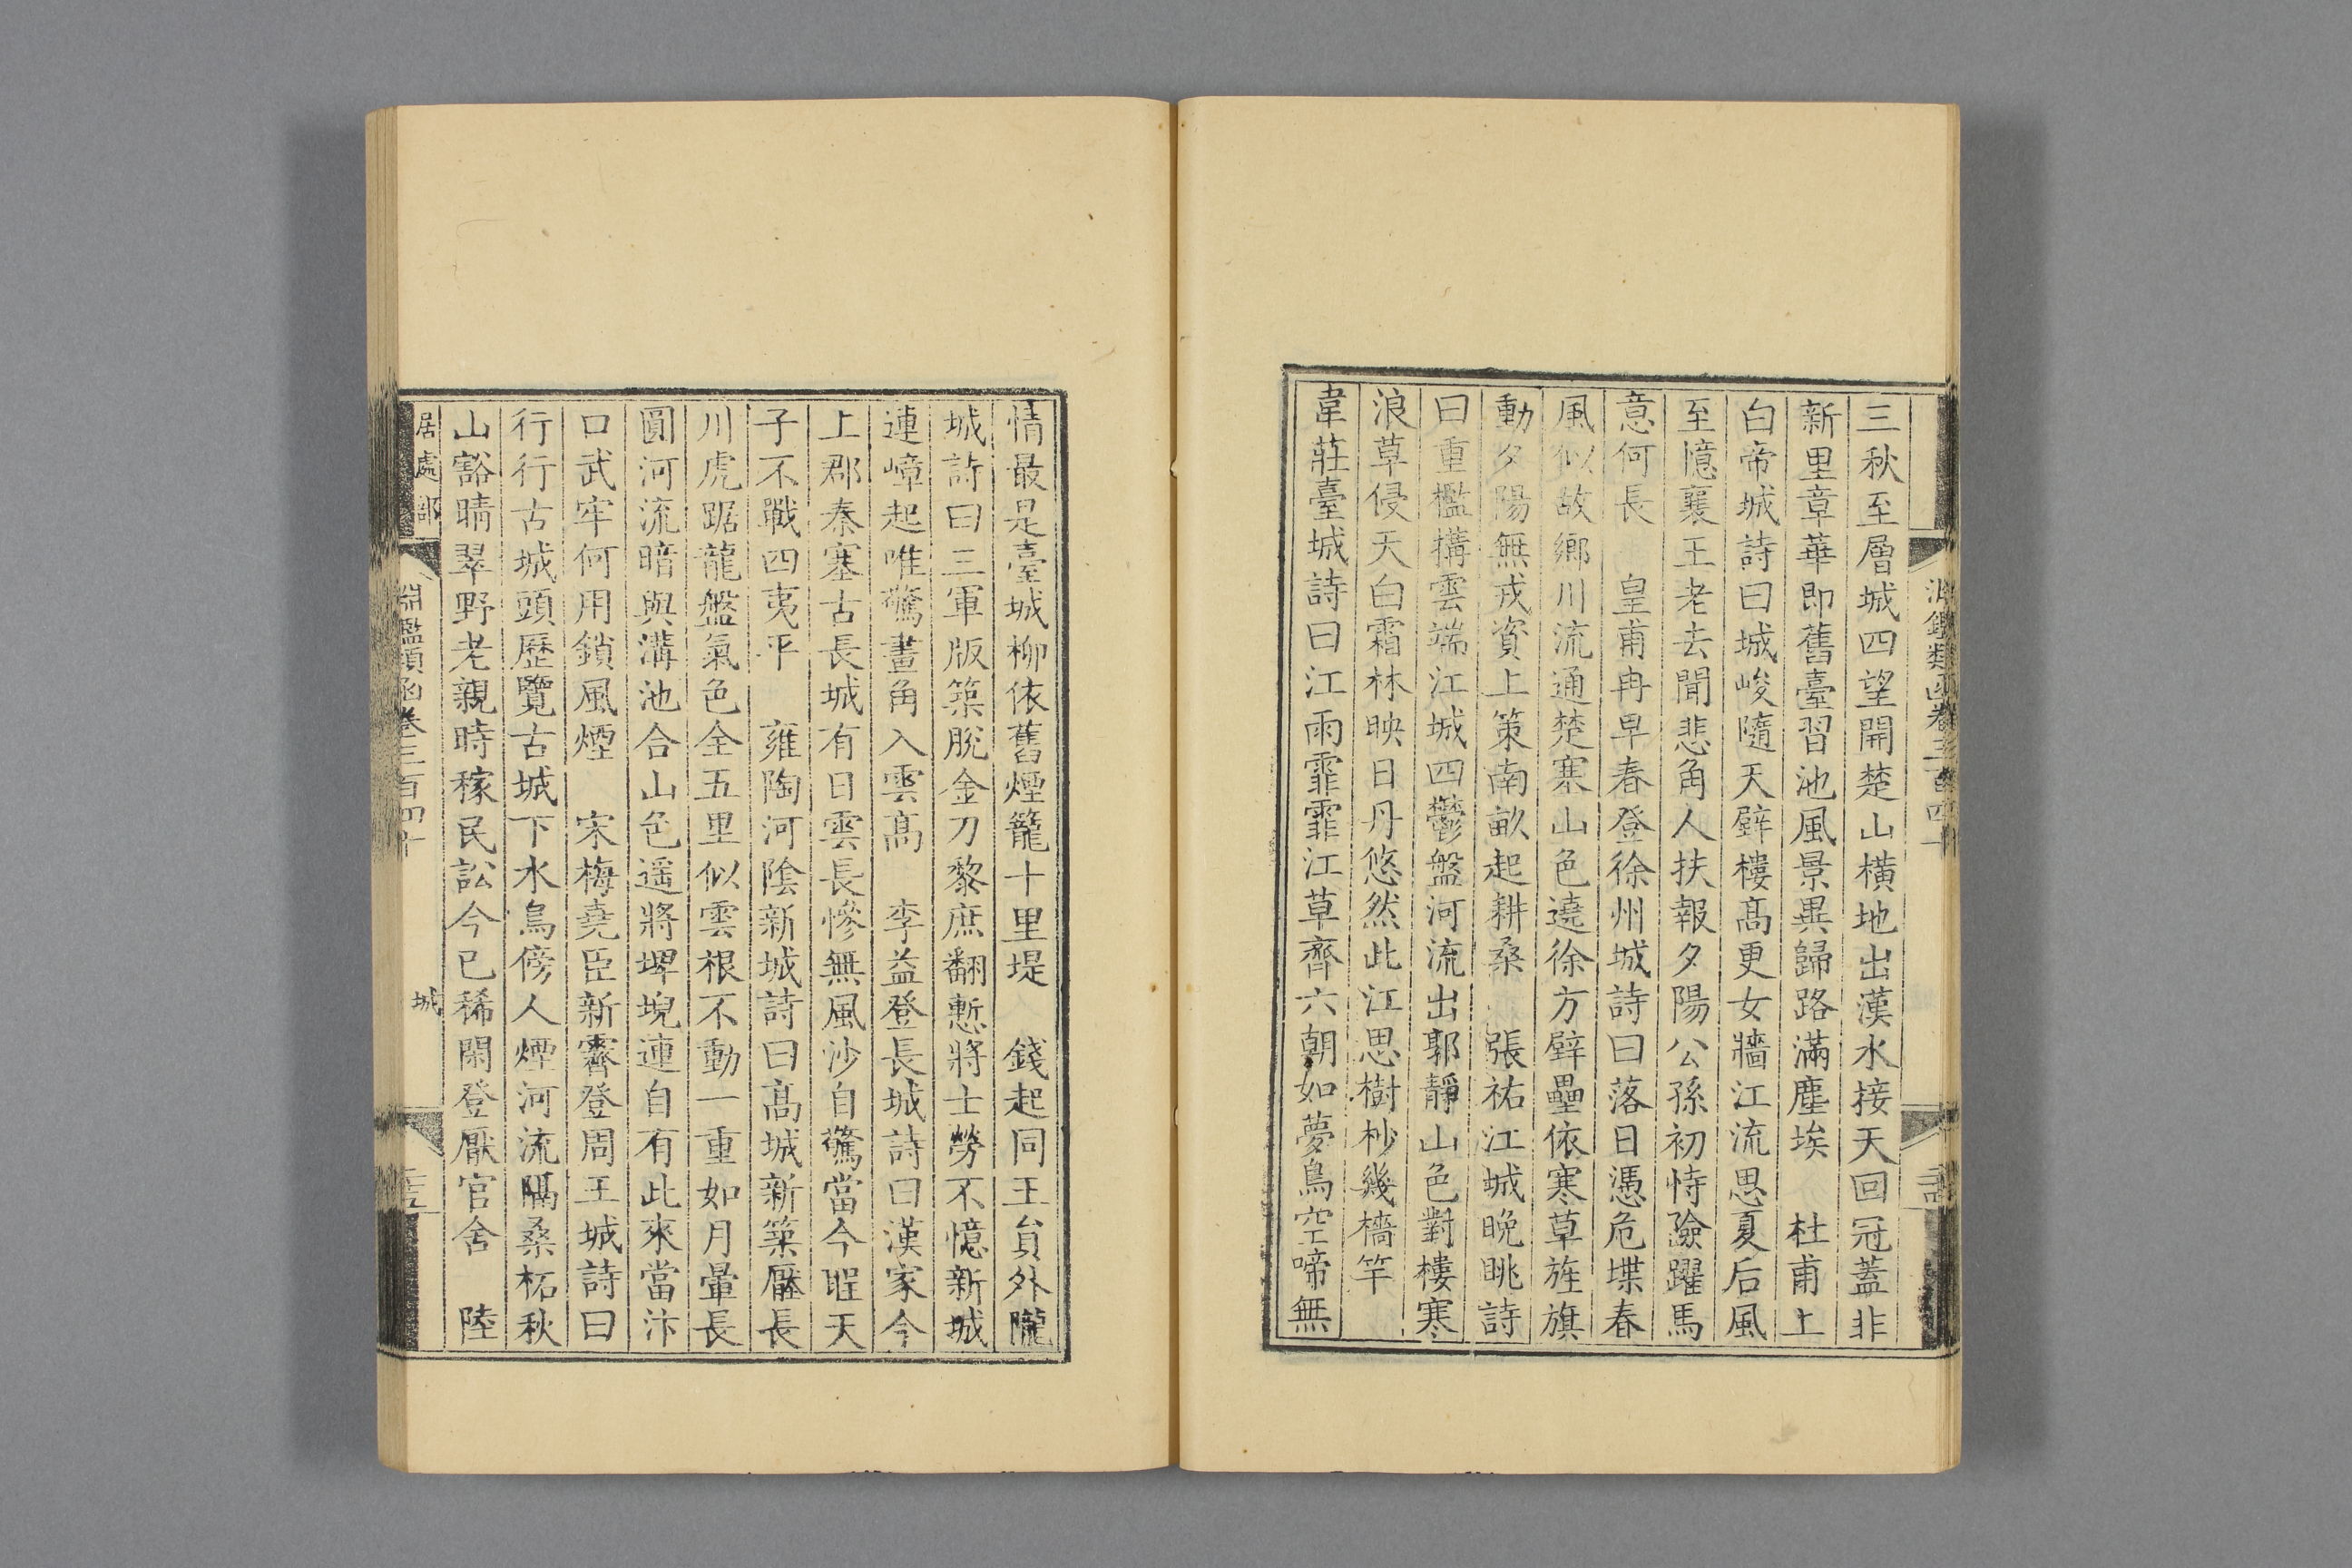 三秋至層城四望開楚山橫地出漢水接天回冠蓋非
新里章華即舊臺習池風景異歸路滿塵埃 杜甫上
白帝城詩曰城峻隨天壁樓髙更女牆江流思夏后風
至憶襄王老去聞悲角人扶報夕陽公孫初恃險躍馬
意何長 皇甫冉早春登徐州城詩曰落日憑危堞春
風似故鄉川流通楚寒山色遶徐方壁壘依寒草旌旗
動夕陽無戎資上策南畝起耕桑 張祐江城晩眺詩
曰重檻搆雲端江城四鬱盤河流出郭靜山色對樓寒
浪草侵天白霜林映日丹悠然此江思樹杪幾檣竿
韋莊臺城詩曰江雨霏霏江草齊六朝如夢鳥空啼無
情最是臺城柳依舊煙籠十里堤 錢起同王員外隴
城詩曰三軍版築脫金刀黎庶翻慙將士勞不憶新城
連嶂起唯驚畫角入雲髙 李益登長城詩曰漢家今
上郡秦塞古長城有日雲長慘無風沙自驚當今聖天
子不戰四夷平 雍陶河陰新城詩曰髙城新築壓長
川虎踞龍盤氣色全五里似雲根不動一重如月暈長
圓河流暗與溝池合山色遥將堺堄連自有此來當汴
口武牢何用鎖風煙 宋梅堯臣新霽登周王城詩曰
行行古城頭歷覽古城下水鳥傍人煙河流隔桑柘秋
山豁晴翠野老親時稼民訟今已稀閑登厭官舍 陸
居處部 淵鑑類函卷三百四十 城